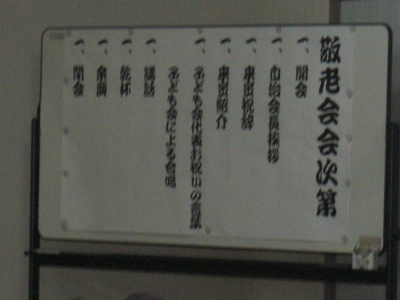 敬老会会次第
一、開会
一、自治会長挨拶
一、来賓祝辞
一、来賓紹介
一、子ども会代表お祝いの言葉
子ども会による合唱
一、講話
一、乾杯
一、余興
一、閉会